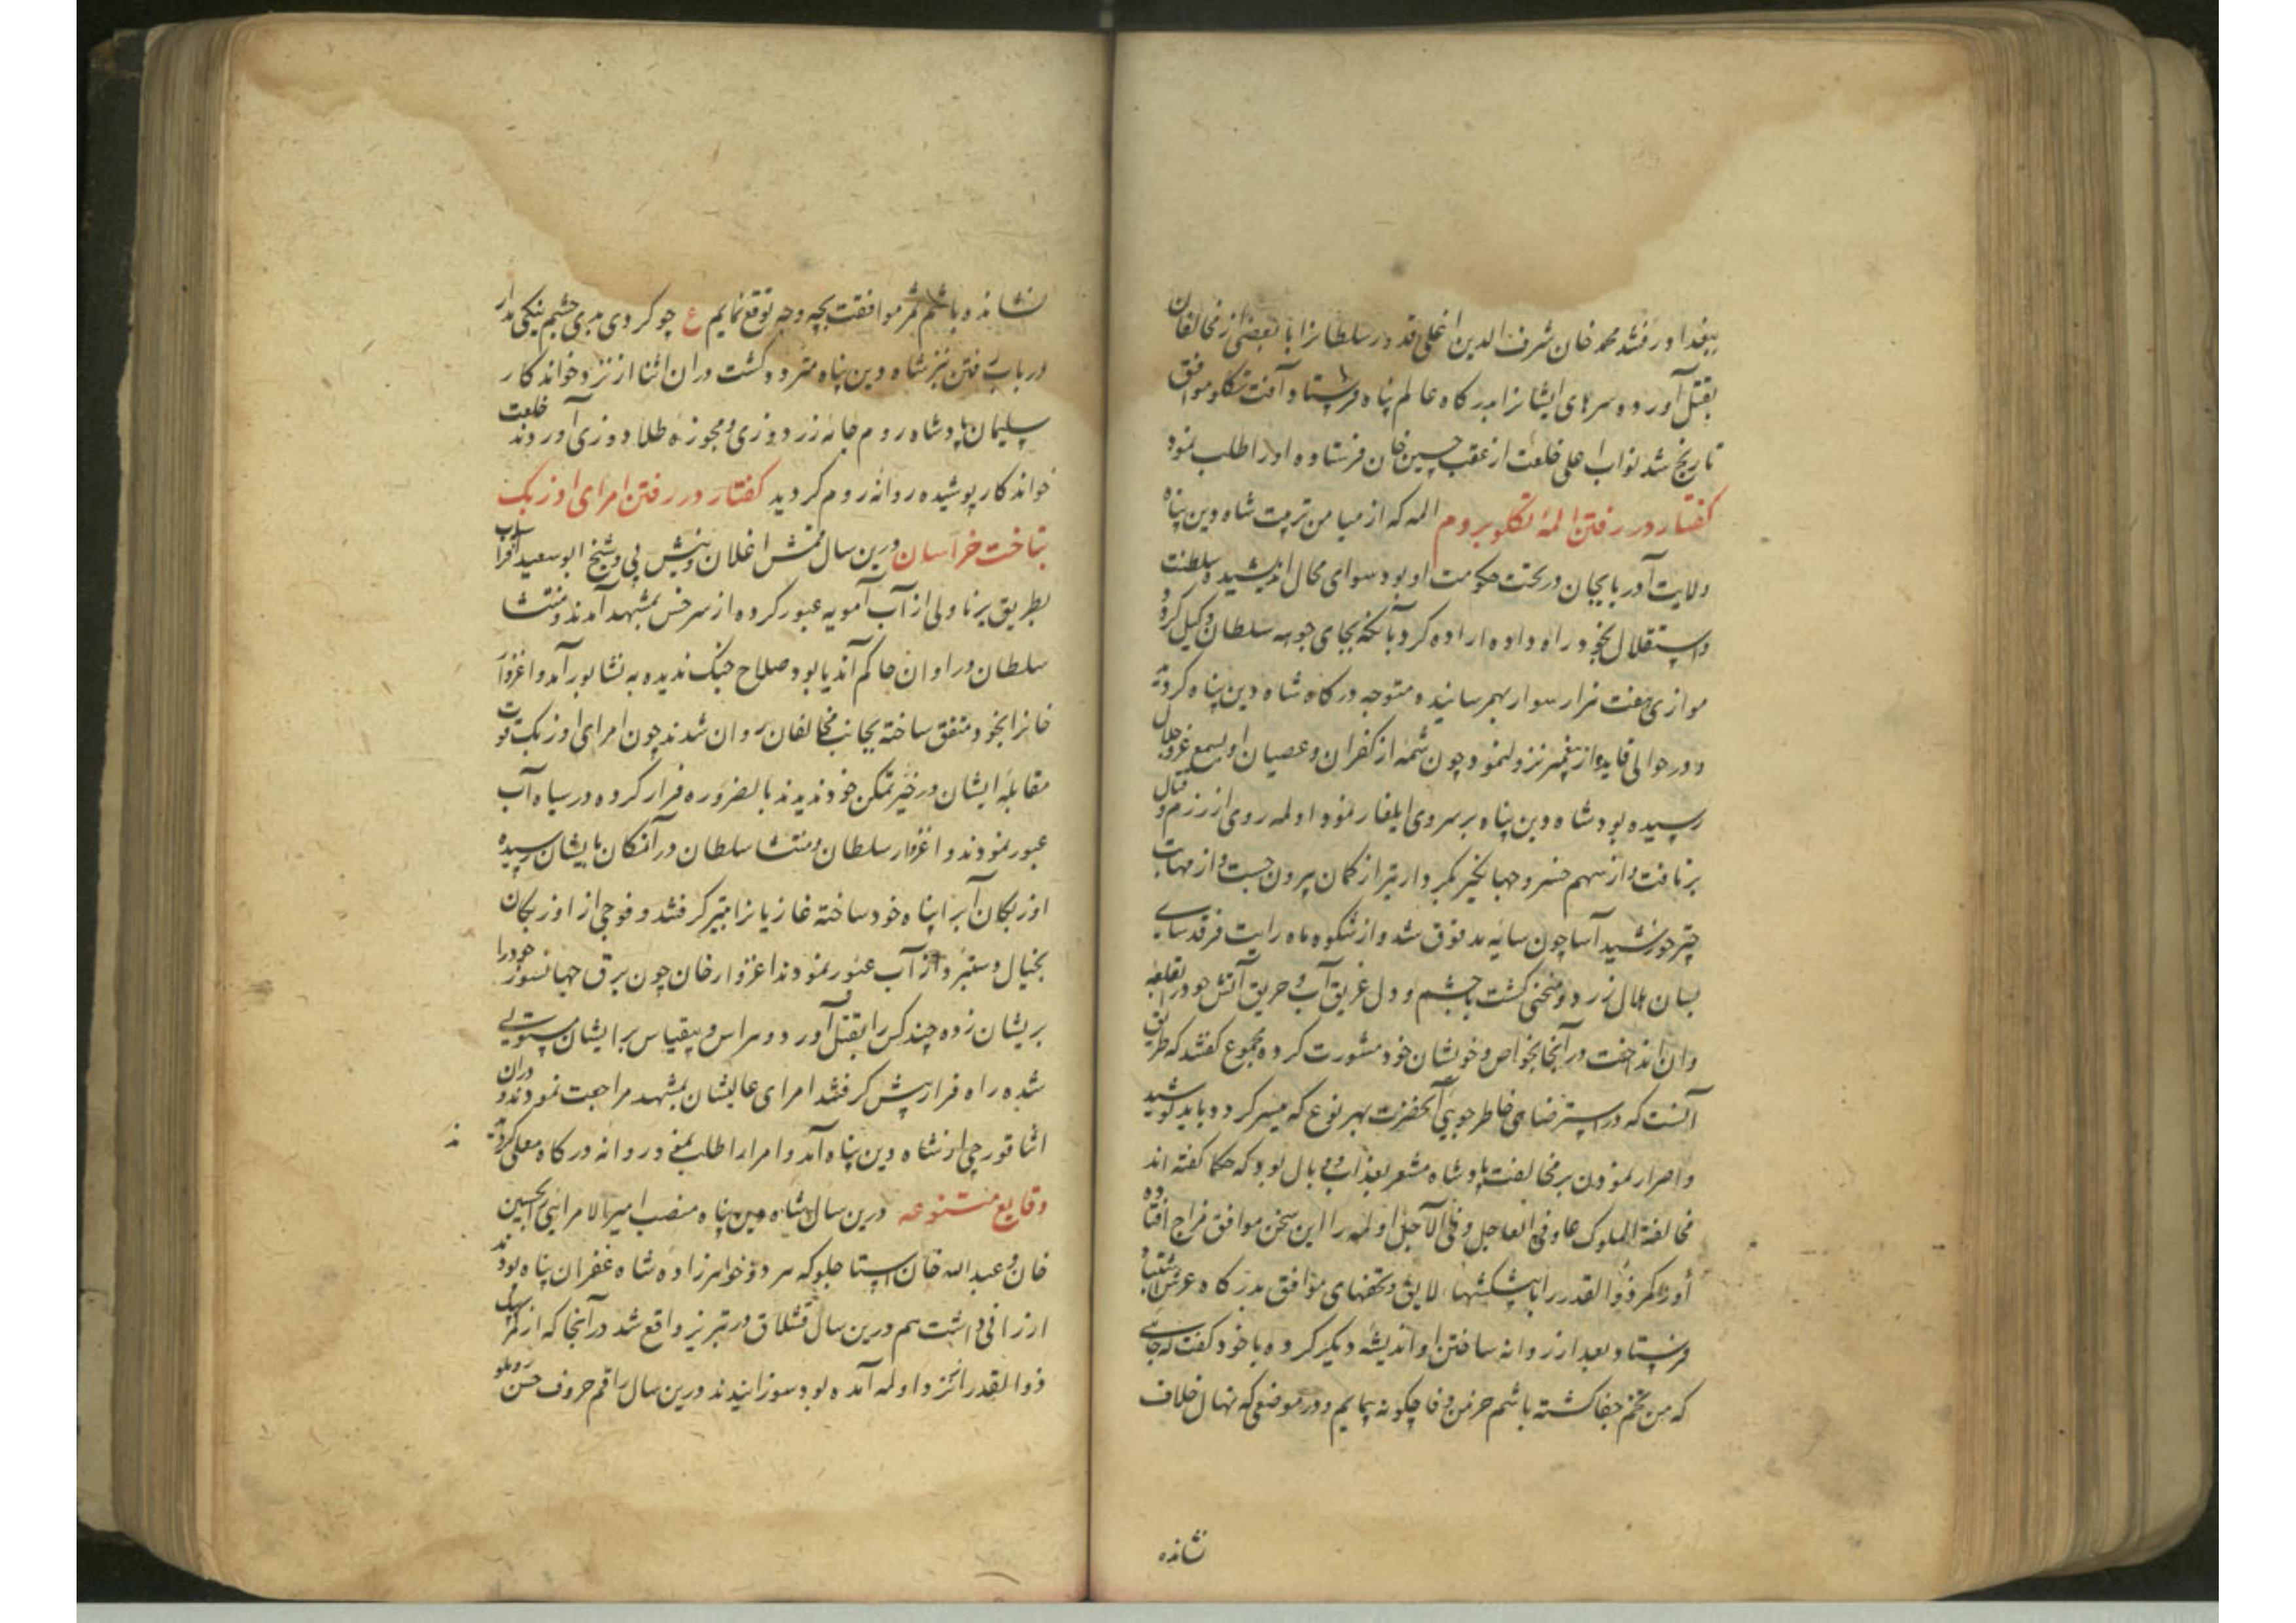 ببغداد رفتند محمد خان شرف الدین اغلی قدور سلطانرا با بعضی از مخالفان
بقتل آورد و سرهای ایشانرا بدرکاه عالم پناه فرستاد و آفت تکلو موافق
تاریخ شد نواب اعلی خلعت از عقب حسین خان فرستاده او را طلب نمود
کفتار در رفتن المهٔ تکلو بروم المه که از میامن تربیت شاه دین پناه
ولایت آذربایجان در تحت حکومت او بود سوای محال اندیشیده سلطنت
و استقلال بخود راه داده اراده کرد بآنکه بجای جوهه سلطان وکیل کردد
موازی هفت هزار سوار بهم رسانیده متوجه درکاه شاه دین پناه کردید
و در حوالی نزول نمود چون شمه از کفران و عصیان او بسمع عز و جلال
رسیده بود شاه دین پناه بر سر وی ایلغار نمود اولمه روی از رزم و قتال
برتافت و از سهم خسرو جهانکیر کمردار تیر از کمان بیرون جست و از مهابت
چتر خورشید آسا چون سایه مدقوق شد و از شکوه ماه رایت فرقدسای
بسان هلال زرد و منحنی کشت با چشم و دل غریق آب و حریق آتش خود را بقلعه
وان انداخت در آنجا بخواص و خویشان خود مشورت کرده مجموع کفتند که طریق
آنست که در استرضای خاطرجویی آنحضرت بهر نوع که میسر کردد باید کوشید
و اصرار نمودن بر مخالفت پادشاه مشعر بعذاب و وبال بود که حکما کفته اند
مخالفة الملوک عار فی العاجل و فی الآجل اولمه را این سخن موافق مزاج افتاده
ذوالقدر را با پیشکشهای لایق و تحفهای موافق بدرکاه عرش اشتباه
فرستاد و بعد از روانه ساختن او اندیشه دیکر کرده با خود کفت که جایی
که من تخم جفا کشته باشم خرمن وفا چکونه پیمایم و در موضعی که نهال خلاف
نشانده
نشانده باشم ثمر موافقت بچه وجه توقع نمایم ع چو کردی بدی چشم نیکی مدار
در باب رفتن نزد شاه دین پناه متردد کشت در ان اثنا از نزد خواندکار
سلیمان پادشاه روم جامه زردوزی و مجوزه طلادوزی آوردند خلعت
خواندکار پوشیده روانهٔ روم کردید کفتار در رفتن امرای اوزبک
بتاخت خراسان درین سال قمش اغلان و بیش بی و شیخ ابوسعید افراسیاب
بطریق یرناولی از آب آمویه عبور کرده از سرخس بمشهد آمدند و منتشا
سلطان در اوان حاکم آندیار بود صلاح جنک ندیده به نشابور آمد و اغزوار
خانرا بخود متفق ساخته بجانب مخالفان روان شدند چون امرای اوزبک قوت
مقابلهٔ ایشان در حیز تمکن خود ندیدند بالضروره فرار کرده در سیاه آب
عبور نمودند و اغزوار سلطان و منتشا سلطان در آنمکان بایشان رسیده
اوزبکان آبرا پناه خود ساخته غازیانرا بتیر کرفتند و فوجی از اوزبکان
بخیال دستبرد از آب عبور نمودند اغزوار خان چون برق جهانسوز خود را
بریشان زده چند کس را بقتل آورد و هراس بیقیاس بر ایشان مستولی
شده راه فرار پیش کرفتند امرای عالیشان بمشهد مراجعت نمودند و در ان
اثنا قورچی از نشاه دین پناه آمد و امرا را طلب نمود روانه درکاه معلی کردیدند
وقایع متنوعه درین سال شاه دین پناه منصب امیرالامرایی بحسین
خان و عبدالله خان استاجلو که هر دو خواهرزاده شاه غفران پناه بودند
ارزانی داشت هم درین سال قشلاق در تبریز واقع شد در آنجا
ذوالقدر را که از نزد اولمه آمده بود سوزانیدند درین سال راقم حروف حسن روملو